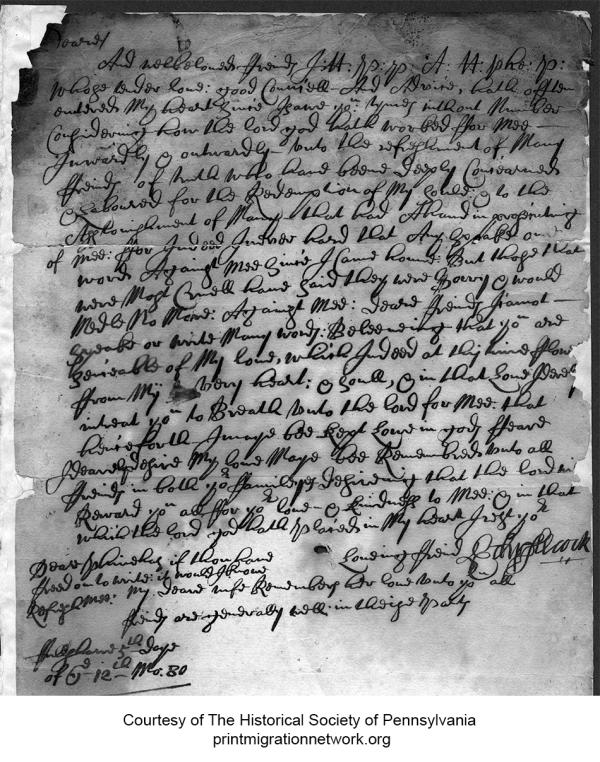 Deare
And welbeloved ffriends J: H: P: P: A: H: Phe: P:
Whose tender Love: good Councell And Advice, hath often
entered My heart since I saw you, tymes without Number
Considering how the lord god hath worked ffor Mee
Inwardly & outwardly unto the refreshment of Many
ffriends of truth who have beene deeply Concearned
& Laboured for the Redemption of My soule, & to the
Astonishment of Many that had A hand in
of Mee: ffor Indeed I never hard that Any speake one
word Against Mee since I Came home: But those that
were Most Cruell have said they were sorry & would
Medle No More: Against Mee: deare ffriends I cannot
speake or write Many words: Beleeveing that you are
senceable of My love, which Indeed at this time fflow
ffrom My very heart: & soull, & in that Love
intreat you to Breath unto the lord for Mee: that
henceforth I maye bee kept Lowe in gods ffeare
I dearely desire My love Maye bee Remembred unto all
ffriends in both yor ffamilyes desireing that the lord
Reward you all ffor yor love & kindness to Mee: & in that
which the lord god hath placed in My heart I rest yor
Loveing ffriend
Deare Phinehas if thou have
ffreedom to write: it would
Refresh Mee: My deare wife Remembers her love unto you all
ffriends are generally well: in theise parts
5th Daye
of ye 12th Mo. 80
Courtesy of The Historical Society of Pennsylvania
printmigrationnetwork.org